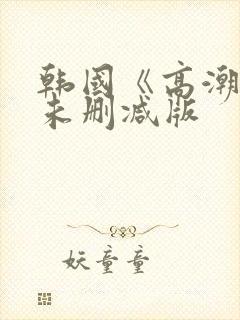 韩國《高潮
未删减版
妖童童